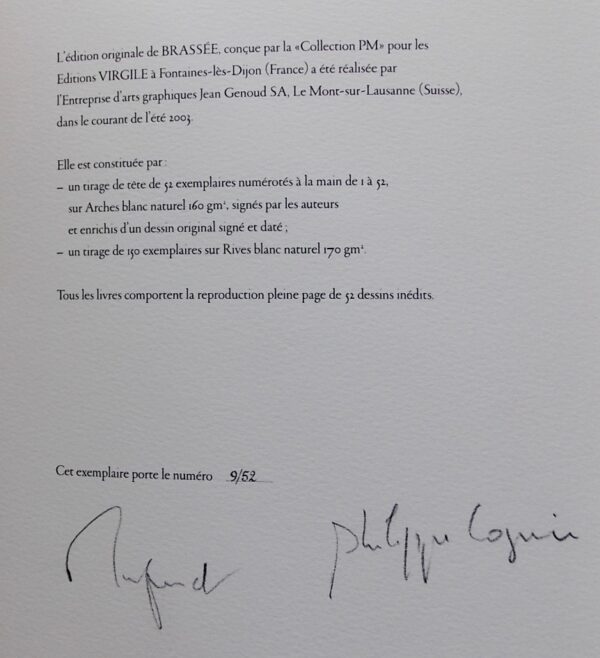 L'édition originale de BRASSÉE, conçue par la «Collection PM» pour les
Editions VIRGILE à Fontaines-lès-Dijon (France) a été réalisée par
l'Entreprise d'arts graphiques Jean Genoud SA, Le Mont-sur-Lausanne (Suisse),
dans le courant de l'été 2003.
Elle est constituée par :
– un tirage de tête de 52 exemplaires numérotés à la main de 1 à 52,
sur Arches blanc naturel 160 gm², signés par les auteurs
et enrichis d'un dessin original signé et daté ;
– un tirage de 150 exemplaires sur Rives blanc naturel 170 gm².
Tous les livres comportent la reproduction pleine page de 52 dessins inédits.
Cet exemplaire porte le numéro 9/52
philippe